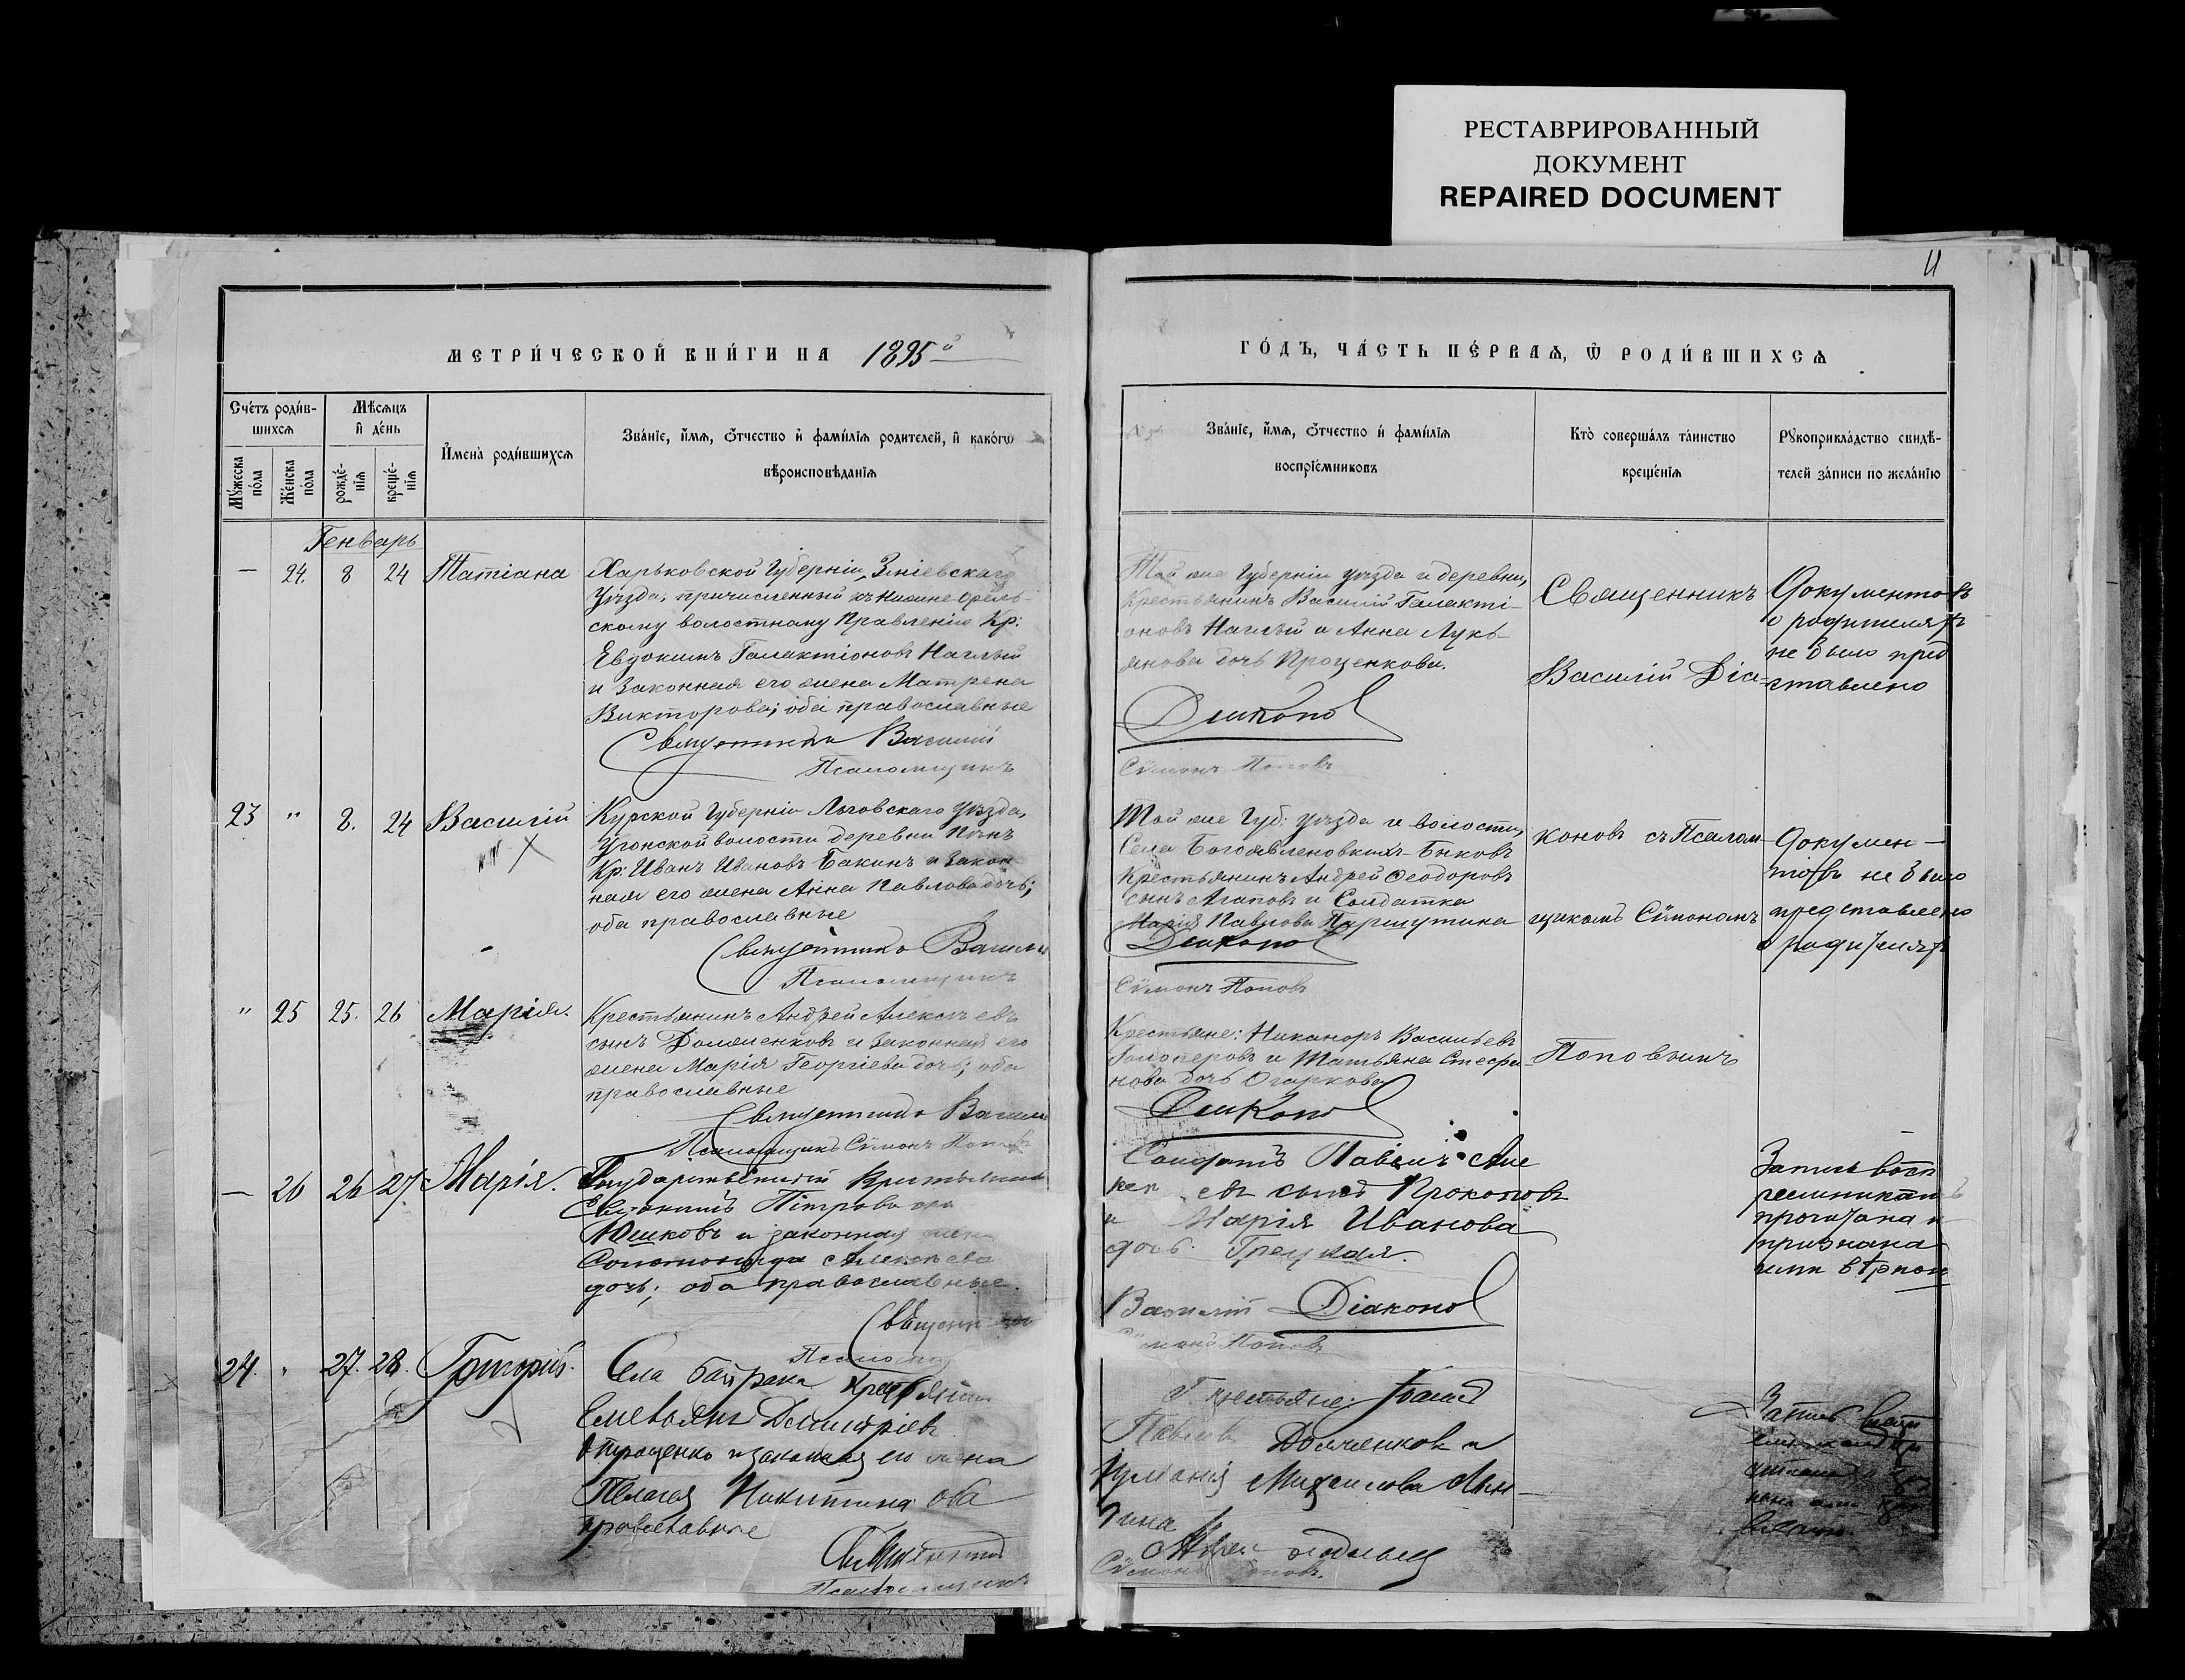 РЕСТАВРИРОВАННЫЙ
ДОКУМЕНТ
REPAIRED DOCUMENT
11
МЕТРИ́ЧЕСКОЙ КНИ́ГИ НА 1895й
ГО́ДЪ, ЧА́СТЬ ПЕ́РВАѦ, Ѡ РОДИ́ВШИХСѦ
Сче́тъ роди́в-
шихсѧ
Мꙋ́жеска
по́ла
Же́нска
по́ла
Мѣ́сѧцъ
и҆ де́нь
рожде́-
нїѧ
креще́-
нїѧ
И҆мена̀ роди́вшихсѧ
Зва́нїе, и҆́мѧ, ѻ҆́тчество и҆ фами́лїѧ родителей, и҆ како́гѡ
вѣроисповѣданїѧ
Зва́нїе, и҆́мѧ, ѻ҆́тчество и҆ фами́лїѧ
воспрїе́мниковъ
Кто̀ соверша́лъ та́инство
креще́нїѧ
Рꙋкоприкла́дство свидѣ́-
телей за́писи по жела́нїю
Генварь
— 24. 8 24 Татіана
Харьковской Губерніи, Зміевскаго
Уѣзда, причисленный къ Нижне-Орель-
скому волостному Правленію Кр:
Евдокимъ Галактіоновъ Наглый
и законная его жена Матрена
Викторова; оба православные
Священникъ Василій
Псаломщикъ
Той же Губерніи уѣзда и деревни,
Крестьянинъ Василій Галакті-
оновъ Наглый и Анна Лукь-
янова дочь Проценкова.
Діаконовъ
Сѵмонъ Поповъ
Священникъ
Василій Діа-
Документовъ
о родителяхъ
не было пред
ставлено
23 " 8. 24 Василій
Курской Губерніи Льговскаго уѣзда,
Угонской волости деревни
Кр: Иванъ Ивановъ Бакинъ и закон-
ная его жена Анна Павлова дочь;
оба православные
Священникъ Василій
Псаломщикъ
Той же Губ: уѣзда и волости,
Села Быковъ
Крестьянинъ Андрей Ѳеодоровъ
сынъ Агаповъ и Солдатка
Марія Павлова
Діаконовъ
Сѵмонъ Поповъ
коновъ съ Псалом-
щикомъ Сѵмономъ
Докумен-
товъ не было
представлено
о родителяхъ
" 25 25. 26 Марія.
Крестьянинъ Андрей Алексѣевъ
сынъ Долженковъ и законная его
жена Марія Георгіева дочь; оба
православные
Священникъ Василій
Псаломщикъ Сѵмонъ Поповъ
Крестьяне: Никаноръ Васильевъ
и Татьяна Стефа-
нова дочь Огаркова
Діаконовъ
Поповымъ
— 26 26 27. Марія.
Государственный Крестьянинъ
Евдокимъ Петровъ
Юшковъ и законная жена
Алексѣева
дочь; оба православные.
Священникъ
Солдатъ Павелъ Але
ксѣевъ сынъ Прокоповъ
и Марія Иванова
дочь Грецкая.
Василій Діаконовъ
Сѵмонъ Поповъ
Запись восп
реемникамъ
прочитана и
признана
ими вѣрной
24. " 27. 28. Григорій.
Села Байрака Крестьянинъ
Емельянъ Димитріевъ
и законная его жена
Пелагея Никитина оба
православные
Священникъ
Псаломщикъ
Крестьяне: Іоаннъ
Павловъ Долженковъ и
Михаилова
Сѵмонъ Поповъ.
Запись